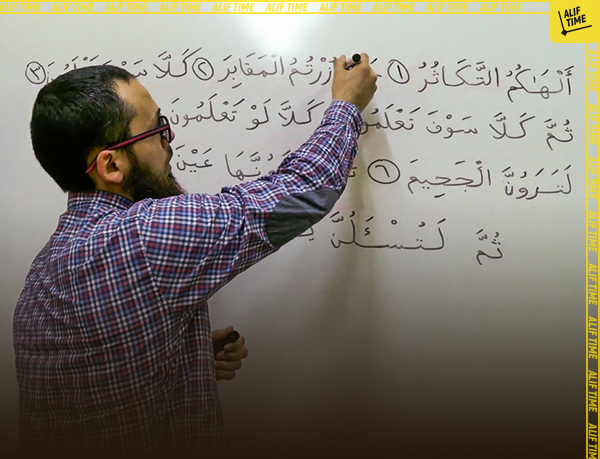 ALIF TIME ALIF TIME ALIF TIME ALIF TIME ALIF TIME ALIF TIME ALIF TIME ALIF TIME ALIF TIME ALIF TIME
ALIF
TIME
أَلْهَـٰكُمُ التَّكَاثُرُ ١ زُرْتُمُ الْمَقَابِرَ ٢ كَلَّا ٣
ثُمَّ كَلَّا سَوْفَ تَعْلَمُونَ كَلَّا لَوْ تَعْلَمُونَ
لَتَرَوُنَّ الْجَحِيمَ ٦ عَيْنَ
ثُمَّ لَتُسْئَلُنَّ
ALIF TIME ALIF TIME ALIF TIME ALIF TIME ALIF TIME ALIF TIME ALIF TIME ALIF TIME